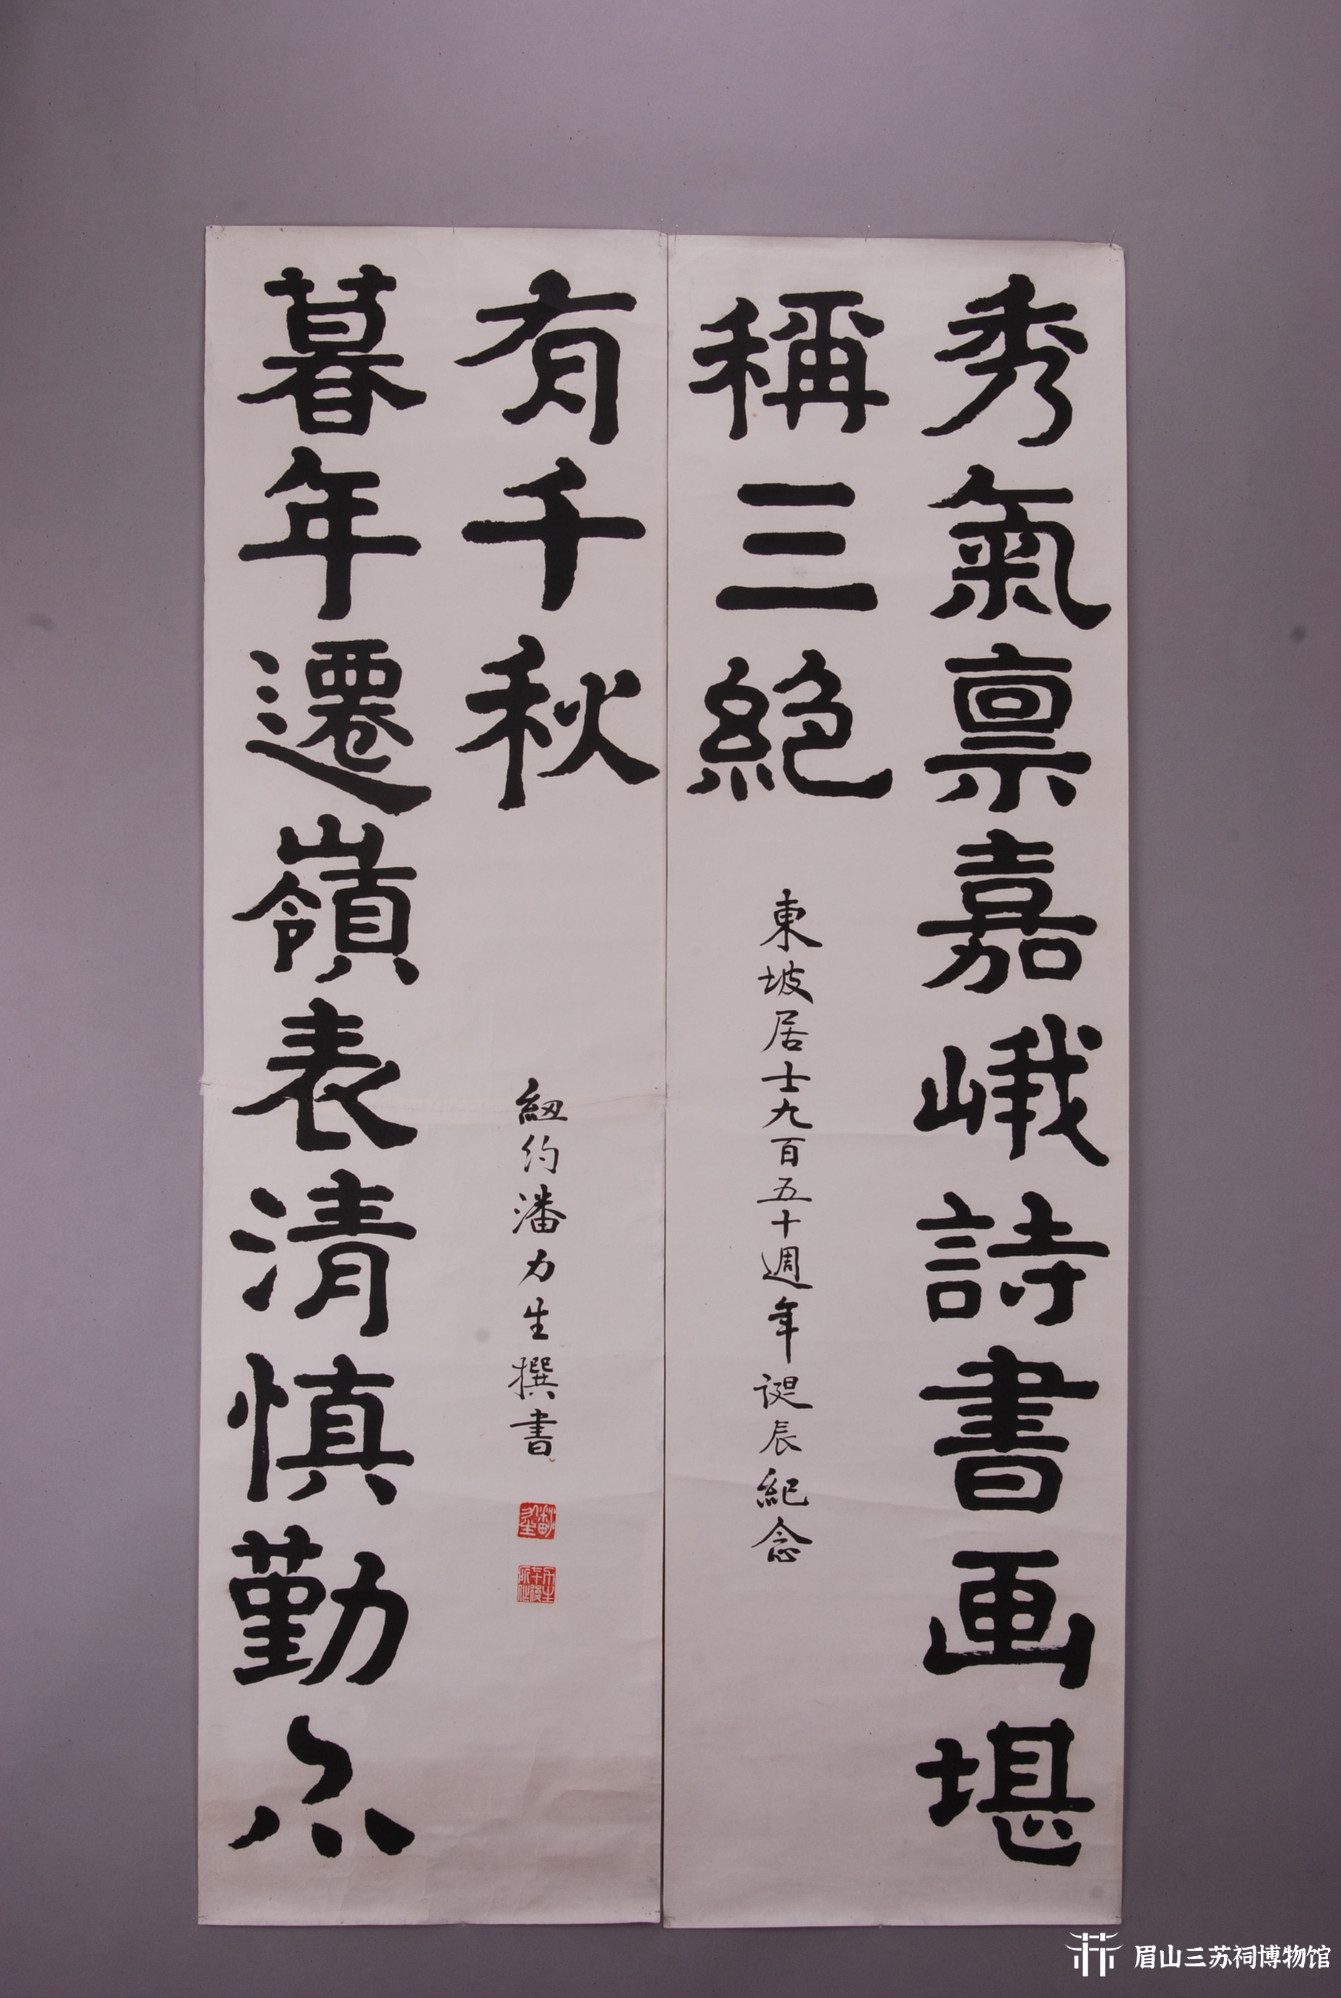 秀氣禀嘉峨詩書画堪
稱三絕
東坡居士九百五十週年誕辰紀念
暮年遷嶺表清慎勤亦
有千秋
紐約潘力生撰書
眉山三苏祠博物馆